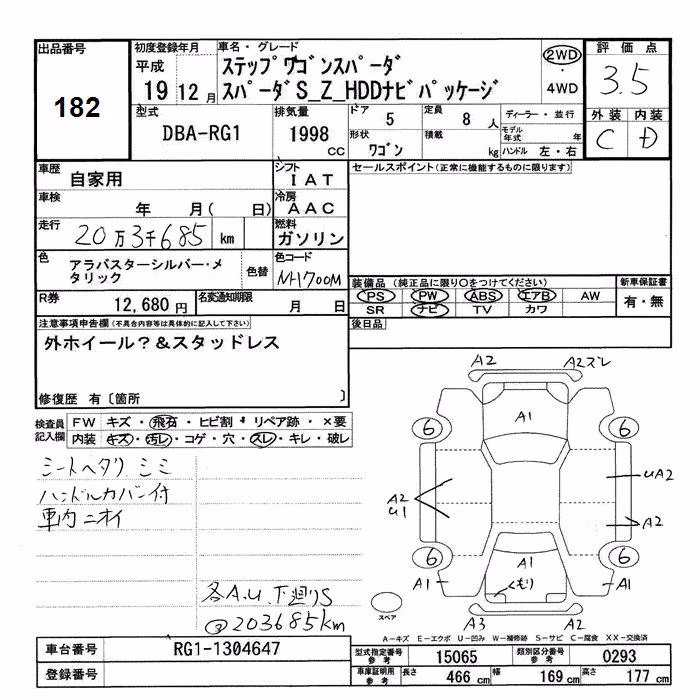 出品番号 182
初度登録年月 平成 19 12月
車名・グレード
ステップワゴンスパーダ
スパーダS_Z_HDDナビパッケージ
2WD ・ 4WD
評価点 3.5
外装 内装
C D
型式 DBA-RG1
排気量 1998 CC
ドア 5
定員 8 人
形状 ワゴン
積載 kg
ディーラー・並行
モデル年式 年
ハンドル 左・右
車歴 自家用
シフト IAT
セールスポイント(正常に機能するものに限ります)
車検 年 月( 日)
冷房 AAC
走行 20万3千685 km
燃料 ガソリン
色 アラバスターシルバー・メタリック
色替
色コード NH700M
装備品 (純正品に限り○をつけてください)
PS PW ABS エアB AW
SR ナビ TV カワ
新車保証書 有・無
R券 12,680円
名変通知期限 月 日
後日品
注意事項申告欄(不具合内容等は具体的に記入して下さい)
外ホイール?&スタッドレス
修復歴 有〔箇所 〕
検査員記入欄
FW キズ・飛石・ヒビ割・リペア跡・×要
内装 キズ・汚レ・コゲ・穴・スレ・キレ・破レ
シートヘタリ シミ
ハンドルカバー付
車内ニオイ
各A.U.下廻りS
③203685km
A2 A2ズレ
A1
6 6
A2
U1
UA2
A2
6 6
A1 A1 A1
くもり
スペア
A3 A2
A-キズ E-エクボ U-凹み W-補修跡 S-サビ C-腐食 XX-交換済
車台番号 RG1-1304647
登録番号
型式指定番号 参考 15065
類別区分番号 参考 0293
車庫証明用 参考 長さ 466 cm 幅 169 cm 高さ 177 cm